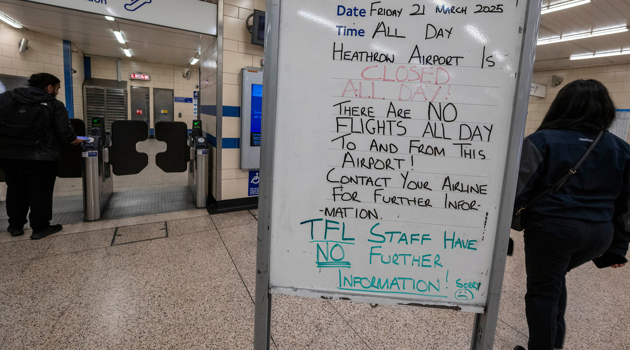 Date Friday 21 March 2025
Time All Day
Heathrow Airport Is
CLOSED
ALL DAY!
There Are NO
Flights All Day
To And From This
Airport!
Contact Your Airline
For Further Infor-
-mation.
TFL Staff Have
NO Further
Information! Sorry